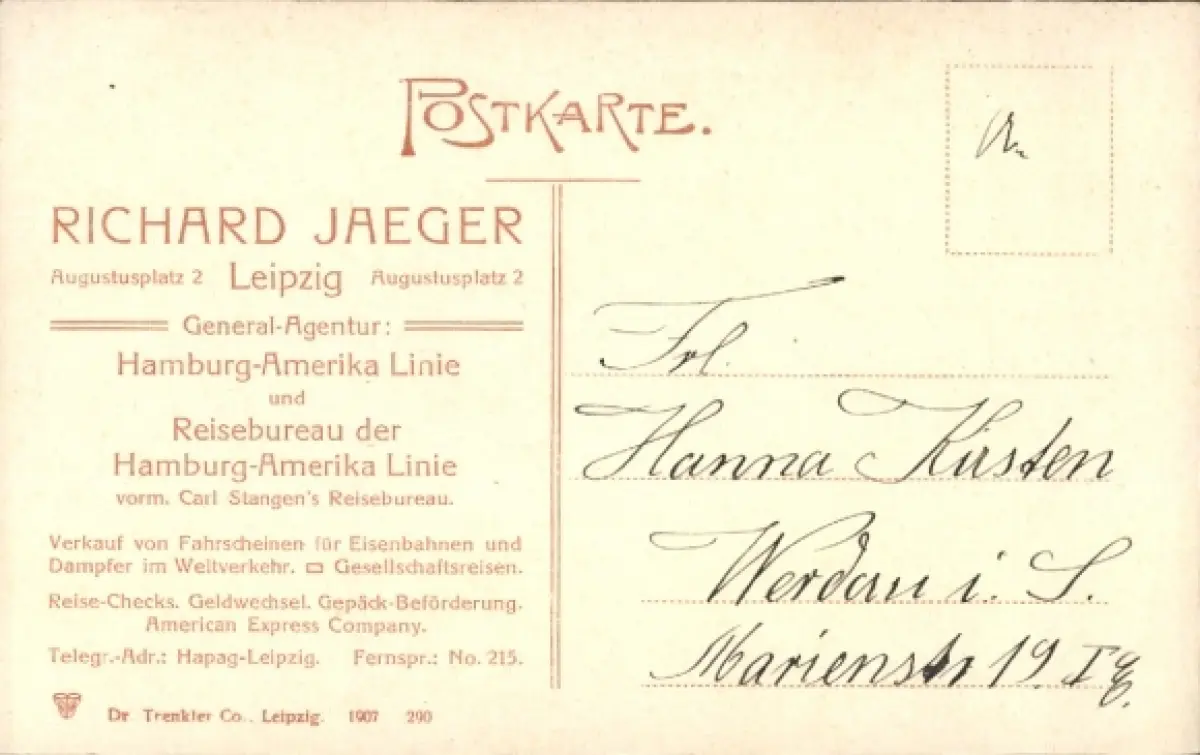 POSTKARTE.
RICHARD JAEGER
Augustusplatz 2 Leipzig Augustusplatz 2
General-Agentur:
Hamburg-Amerika Linie
und
Reisebureau der
Hamburg-Amerika Linie
vorm. Carl Stangen's Reisebureau.
Verkauf von Fahrscheinen für Eisenbahnen und
Dampfer im Weltverkehr. Gesellschaftsreisen.
Reise-Checks. Geldwechsel. Gepäck-Beförderung.
American Express Company.
Telegr.-Adr.: Hapag-Leipzig. Fernspr.: No. 215.
Dr. Trenkler Co., Leipzig. 1907 290
Frl.
Hanna Kirsten
Werdau i. S.
Marienstr 19 I